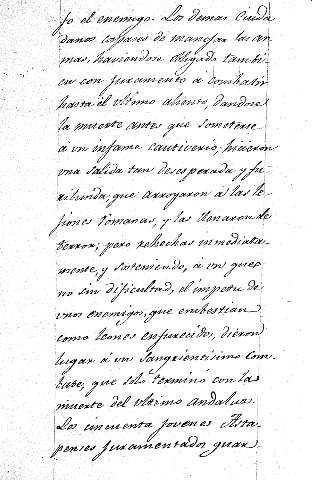 fo el enemigo. Los demas Ciuda
danos capases de manejar las ar
mas, haviendose obligado tambi
en con juramento á combatir
hasta el ultimo aliento, dandose
la muerte antes que someterse
á un infame cautiverio, hicieron
una salida tan desesperada y fu
ribunda, que arroyaron á las le
jiones romanas, y las llenaron de
terror; pero rehechas inmediata
mente, y sosteniendo, á un que
no sin dificultad, el ímpetu de
unos enemigos, que embestian
como leones enfurecidos, dieron
lugar á un sangrientisimo com
bate, que solo terminó con la
muerte del ultimo andaluz.
Los cincuenta jovenes Asta
penses juramentados guar